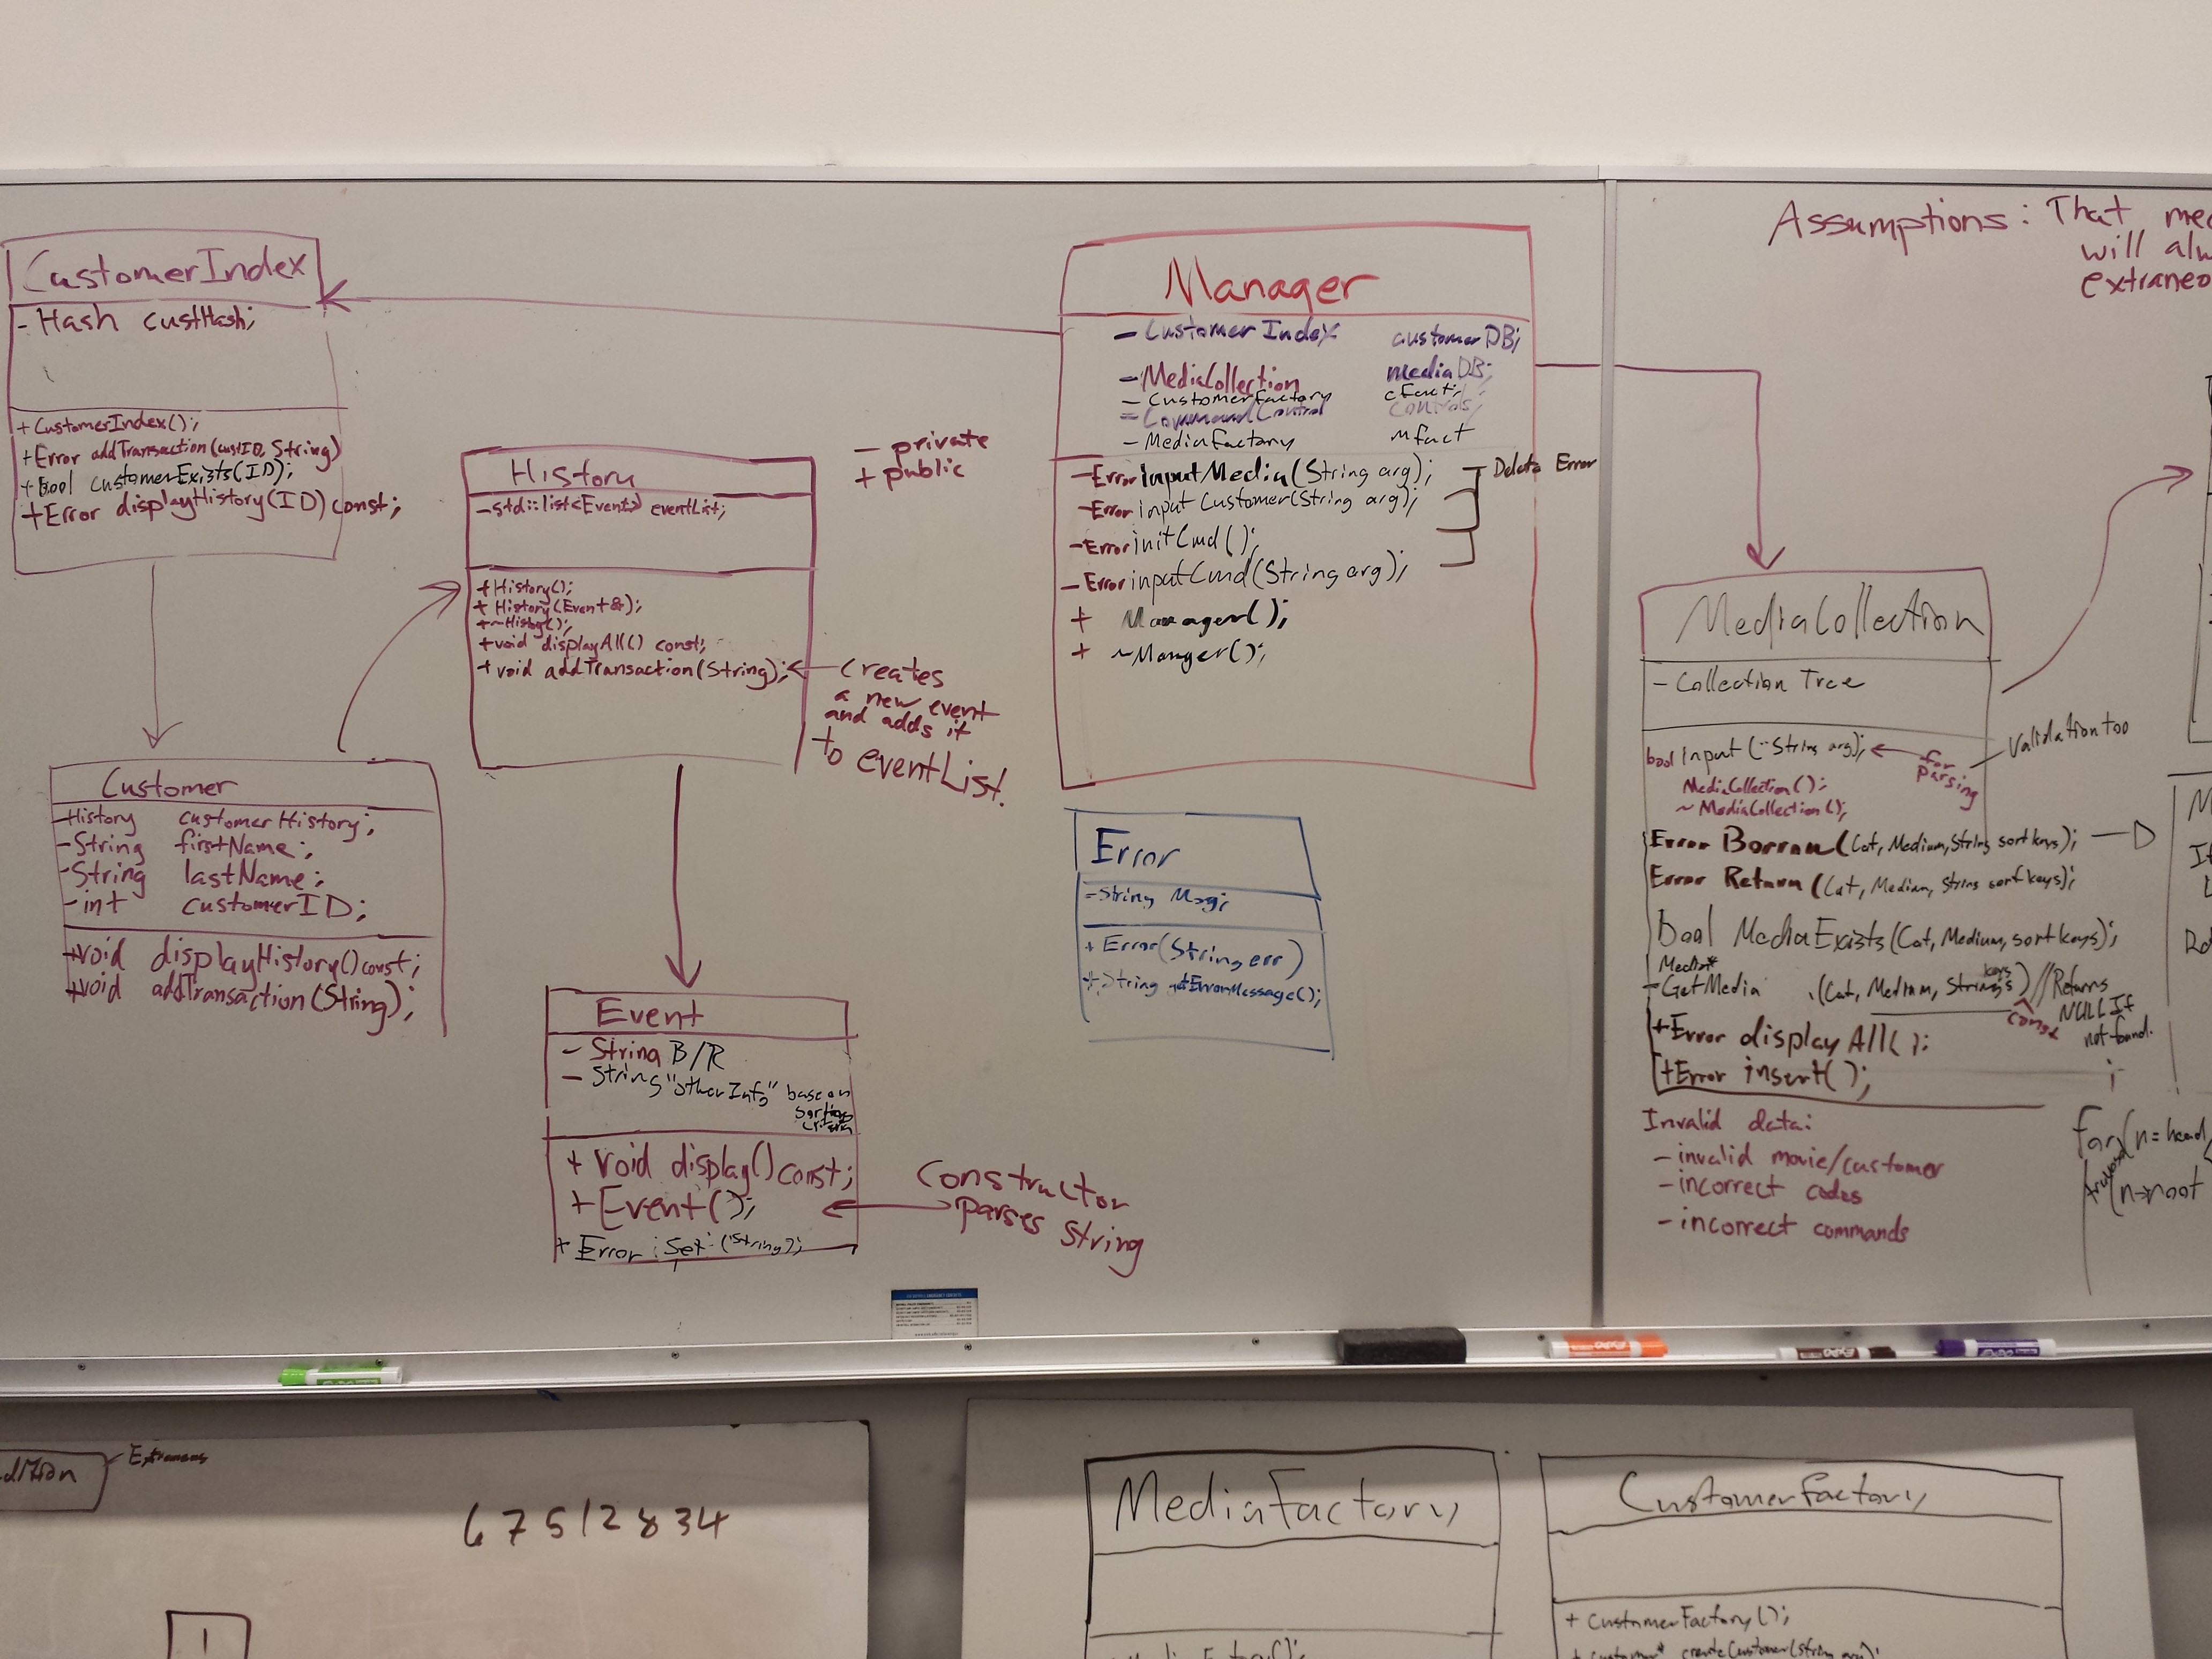 CustomerIndex
- Hash custHash;
+ CustomerIndex();
+ Error addTransaction(custID, String)
+ Bool customerExists(ID);
+ Error displayHistory(ID) const;
Customer
- History customerHistory;
- String firstName;
- String lastName;
- int customerID;
+ void displayHistory() const;
+ void addTransaction(String);
History
- std::list<Event> eventList;
+ History();
+ History(Event &);
+ ~History();
+ void displayAll() const;
+ void addTransaction(String);
creates
a new event
and adds it
to eventList.
- private
+ public
Event
- String B/R
- String "other Info" base on
sorting
criteria
+ void display() const;
+ Event();
+ Error : Set (String);
Constructor
parses String
Manager
- CustomerIndex customerDB;
- MediaCollection mediaDB;
- CustomerFactory cFact;
- CommandControl controls;
- MediaFactory mfact
- Error inputMedia(String arg);
- Error input Customer(String arg);
- Error initCmd();
- Error inputCmd(String arg);
+ Manager();
+ ~Manger();
Delete Error
Error
- String Msg;
+ Error(String err)
+ String getErrorMessage();
Assumptions: That med
will alw
extraneo
MediaCollection
- Collection Tree
bool Input (String arg);
for
parsing
Validation too
MediaCollection();
~MediaCollection();
Error Borrow(Cat, Medium, String sortkeys);
Error Return (Cat, Medium, String sortkeys);
Bool MediaExists(Cat, Medium, sortkeys);
Media*
- GetMedia (Cat, Medium, String keys) // Returns
const
NULL If
not found.
+ Error displayAll();
+ Error insert();
Invalid data:
- invalid movie/customer
- incorrect codes
- incorrect commands
for(n=head,
(n->root
Extraneous
67512834
1
MediaFactory
CustomerFactory
+ CustomerFactory();
+ Customer* createCustomer(String arg);